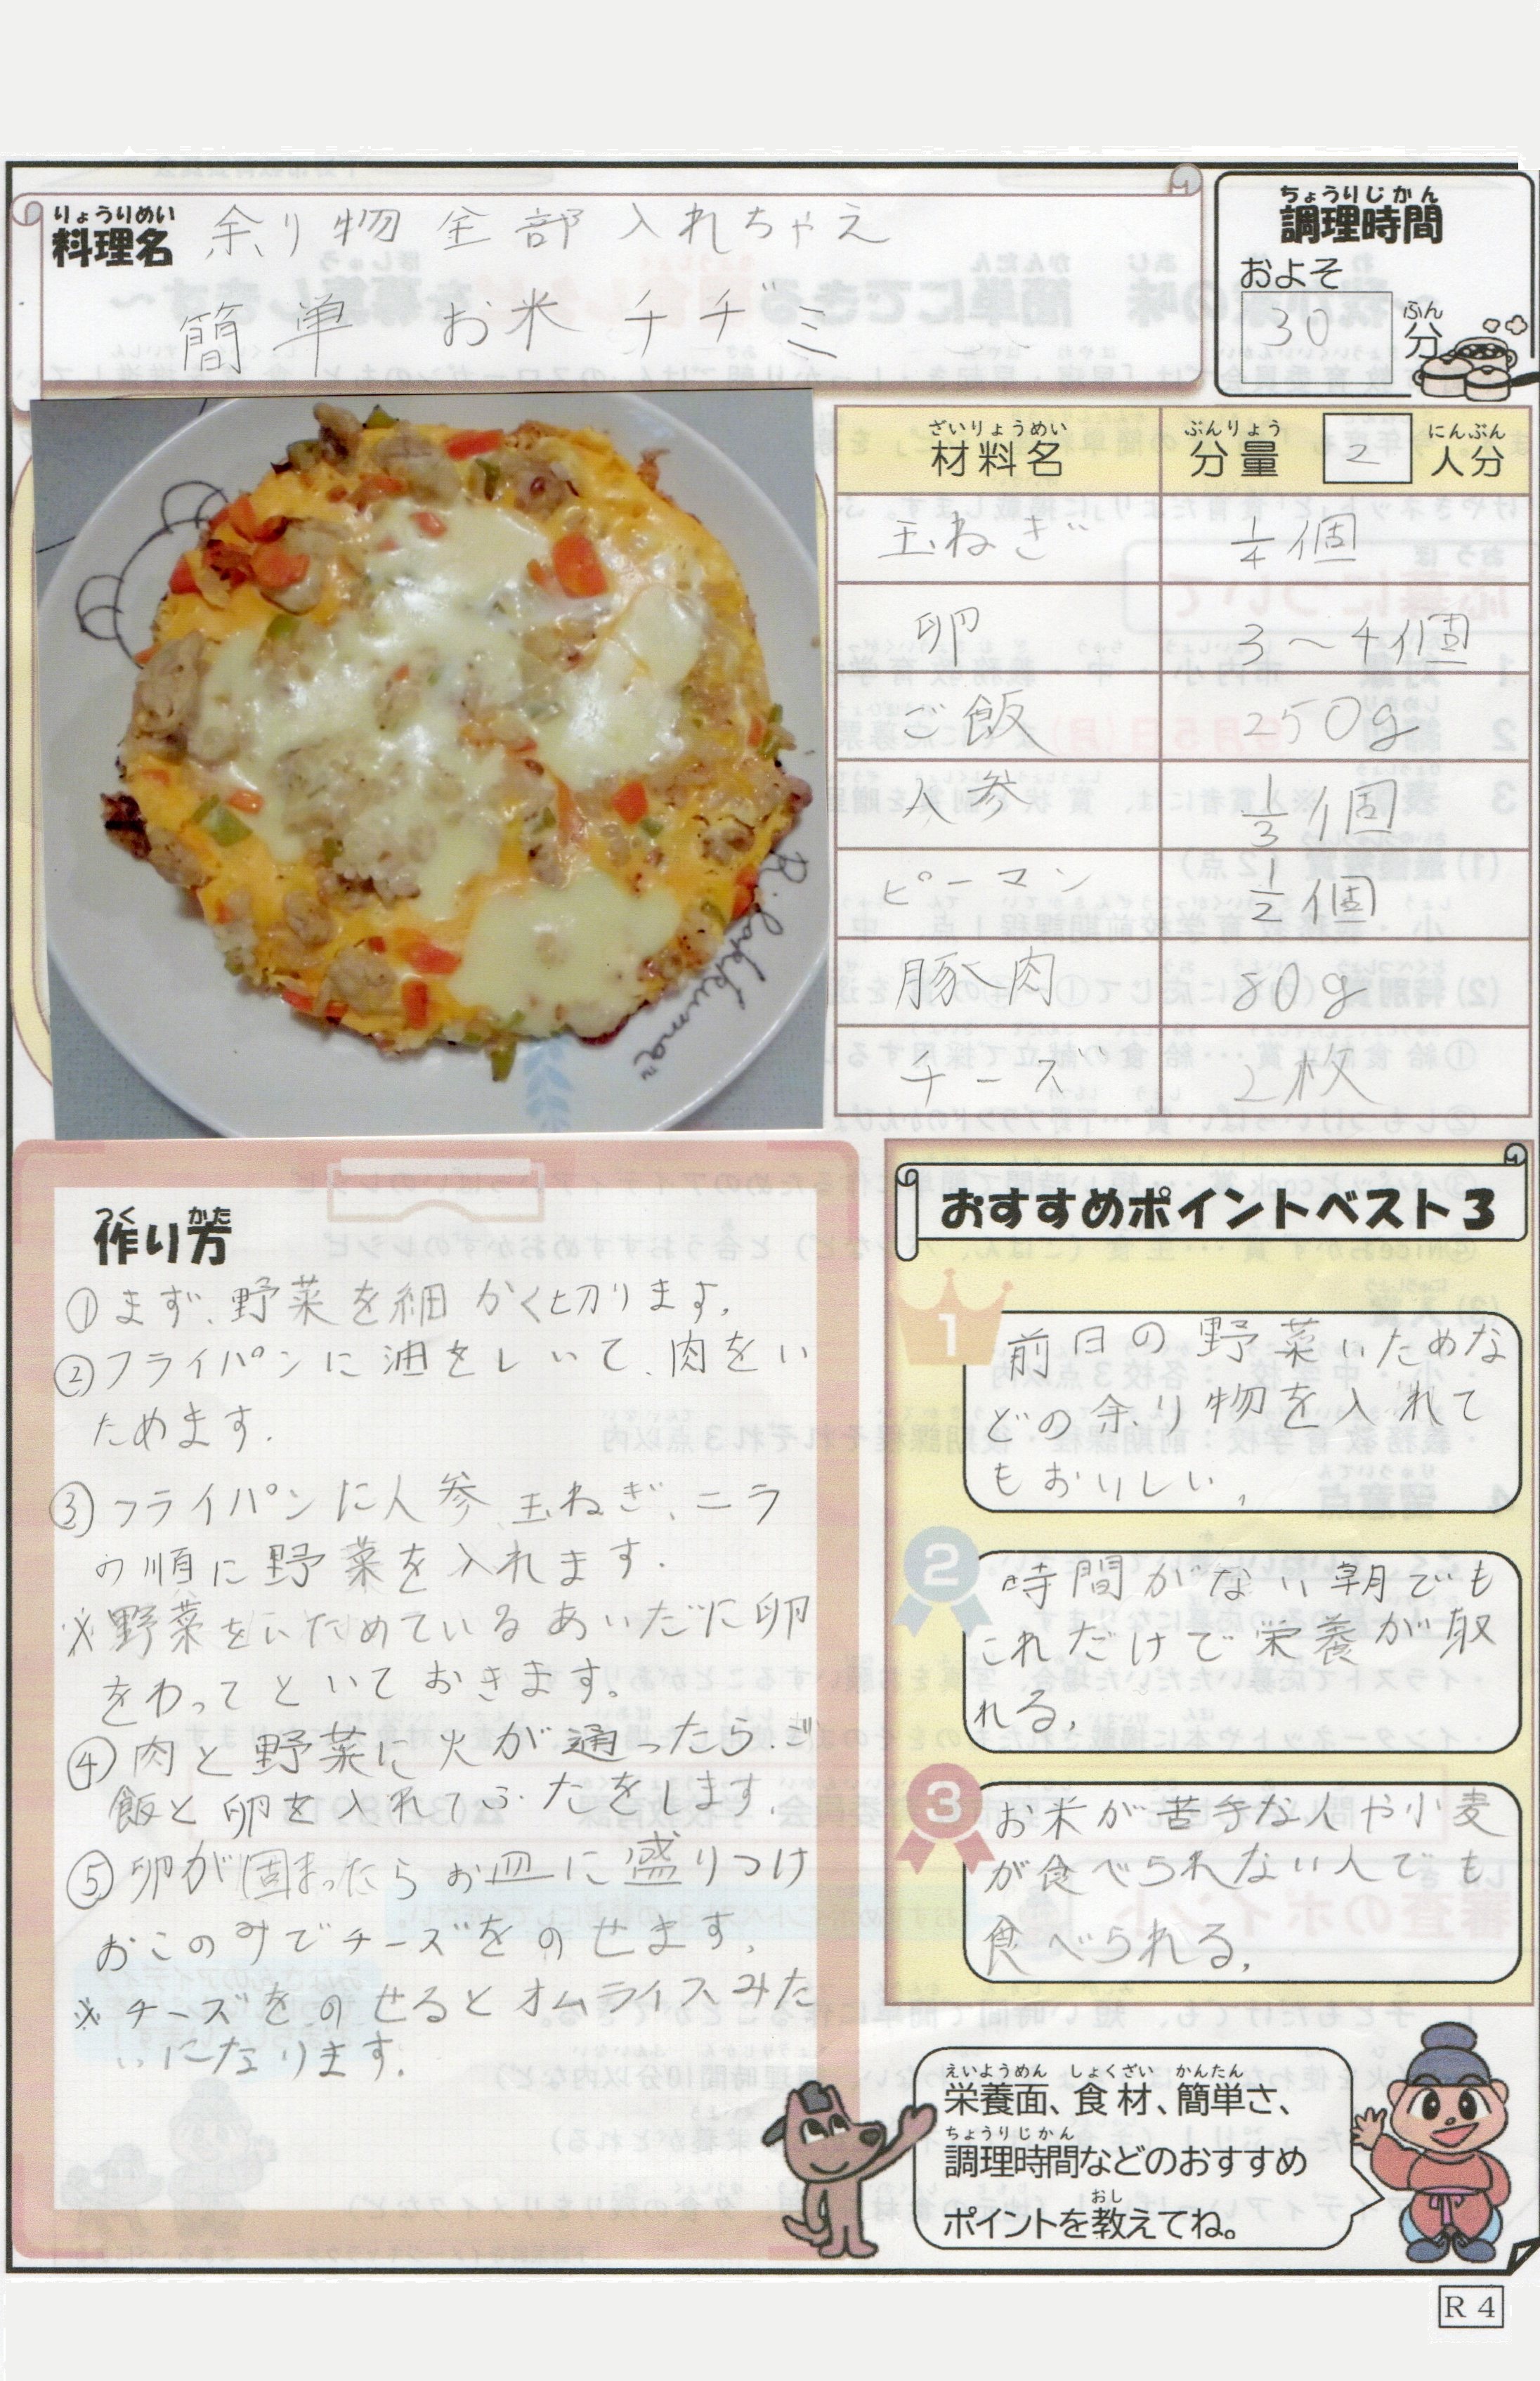 りょうりめい
料理名 余り物全部入れちゃえ
簡単 お米チヂミ
ちょうりじかん
調理時間
およそ
30 分
ふん
ざいりょうめい ぶんりょう にんぶん
材料名 分量 2 人分
玉ねぎ 1/4個
卵 3〜4個
ご飯 250g
人参 1/3個
ピーマン 1/2個
豚肉 80g
チーズ 2枚
つく かた
作り方
①まず、野菜を細かく切ります。
②フライパンに油をしいて、肉をい
ためます。
③フライパンに人参、玉ねぎ、ニラ
の順に野菜を入れます。
※野菜をいためているあいだに卵
をわってといておきます。
④肉と野菜に火が通ったら、ご
飯と卵を入れてふたをします。
⑤卵が固まったらお皿に盛りつけ
おこのみでチーズをのせます。
※チーズをのせるとオムライスみた
いになります。
おすすめポイントベスト3
1
前日の野菜いためな
どの余り物を入れて
もおいしい。
2
時間がない朝でも
これだけで栄養が取
れる。
3
お米が苦手な人や小麦
が食べられない人でも
食べられる。
えいようめん しょくざい かんたん
栄養面、食材、簡単さ、
ちょうりじかん
調理時間などのおすすめ
おし
ポイントを教えてね。
R 4